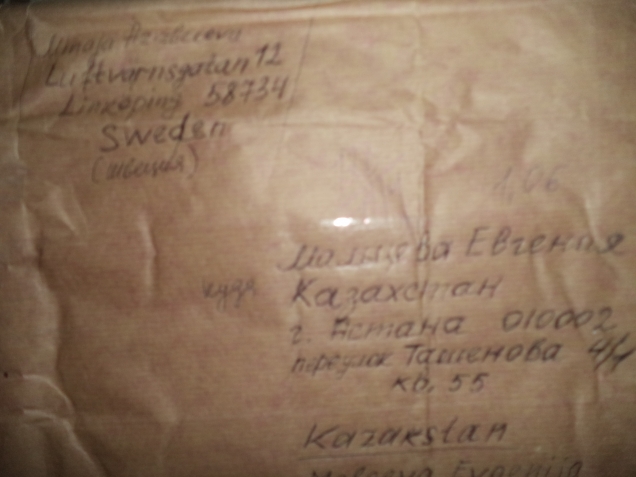 Luftvärnsgatan 12
Linköping 58734
Sweden
(Швеция)
1,06
Мальцева Евгения
куда
Казахстан
г. Астана 010002
переулок Ташенова 4/1
кв. 55
Kazakstan
Evgenija